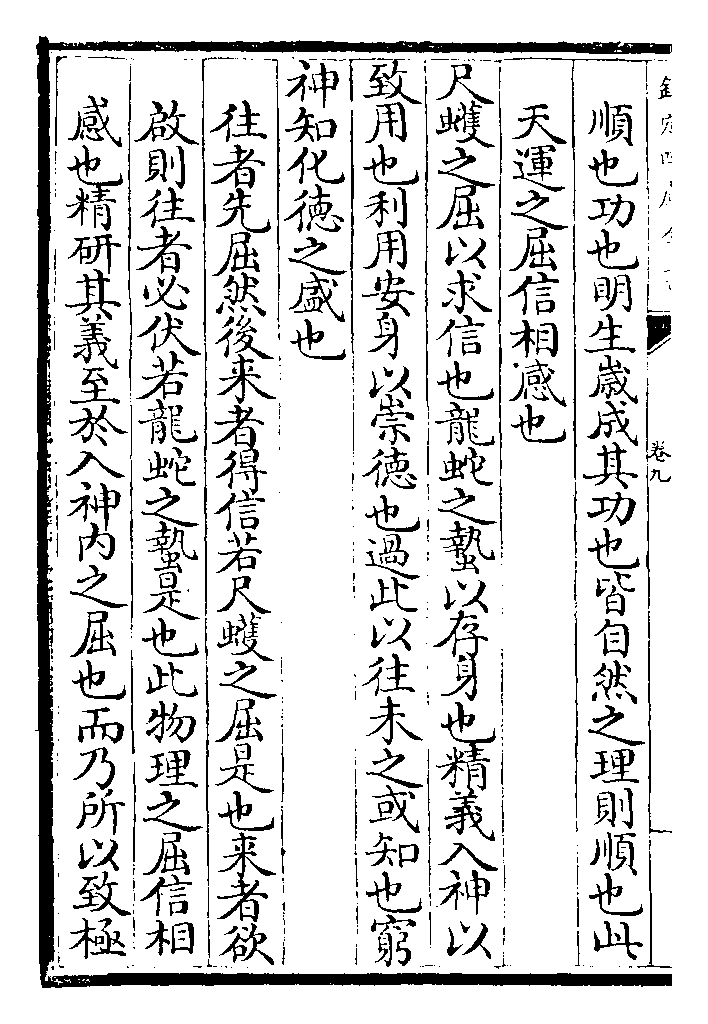 卷九
順也功也明生嵗成其功也皆自然之理則順也此
天運之屈信相感也
尺蠖之屈以求信也龍蛇之蟄以存身也精義入神以
致用也利用安身以崇徳也過此以往未之或知也窮
神知化徳之盛也
往者先屈然後来者得信若尺蠖之屈是也来者欲
啟則往者必伏若龍蛇之蟄是也此物理之屈信相
感也精研其義至於入神内之屈也而乃所以致極